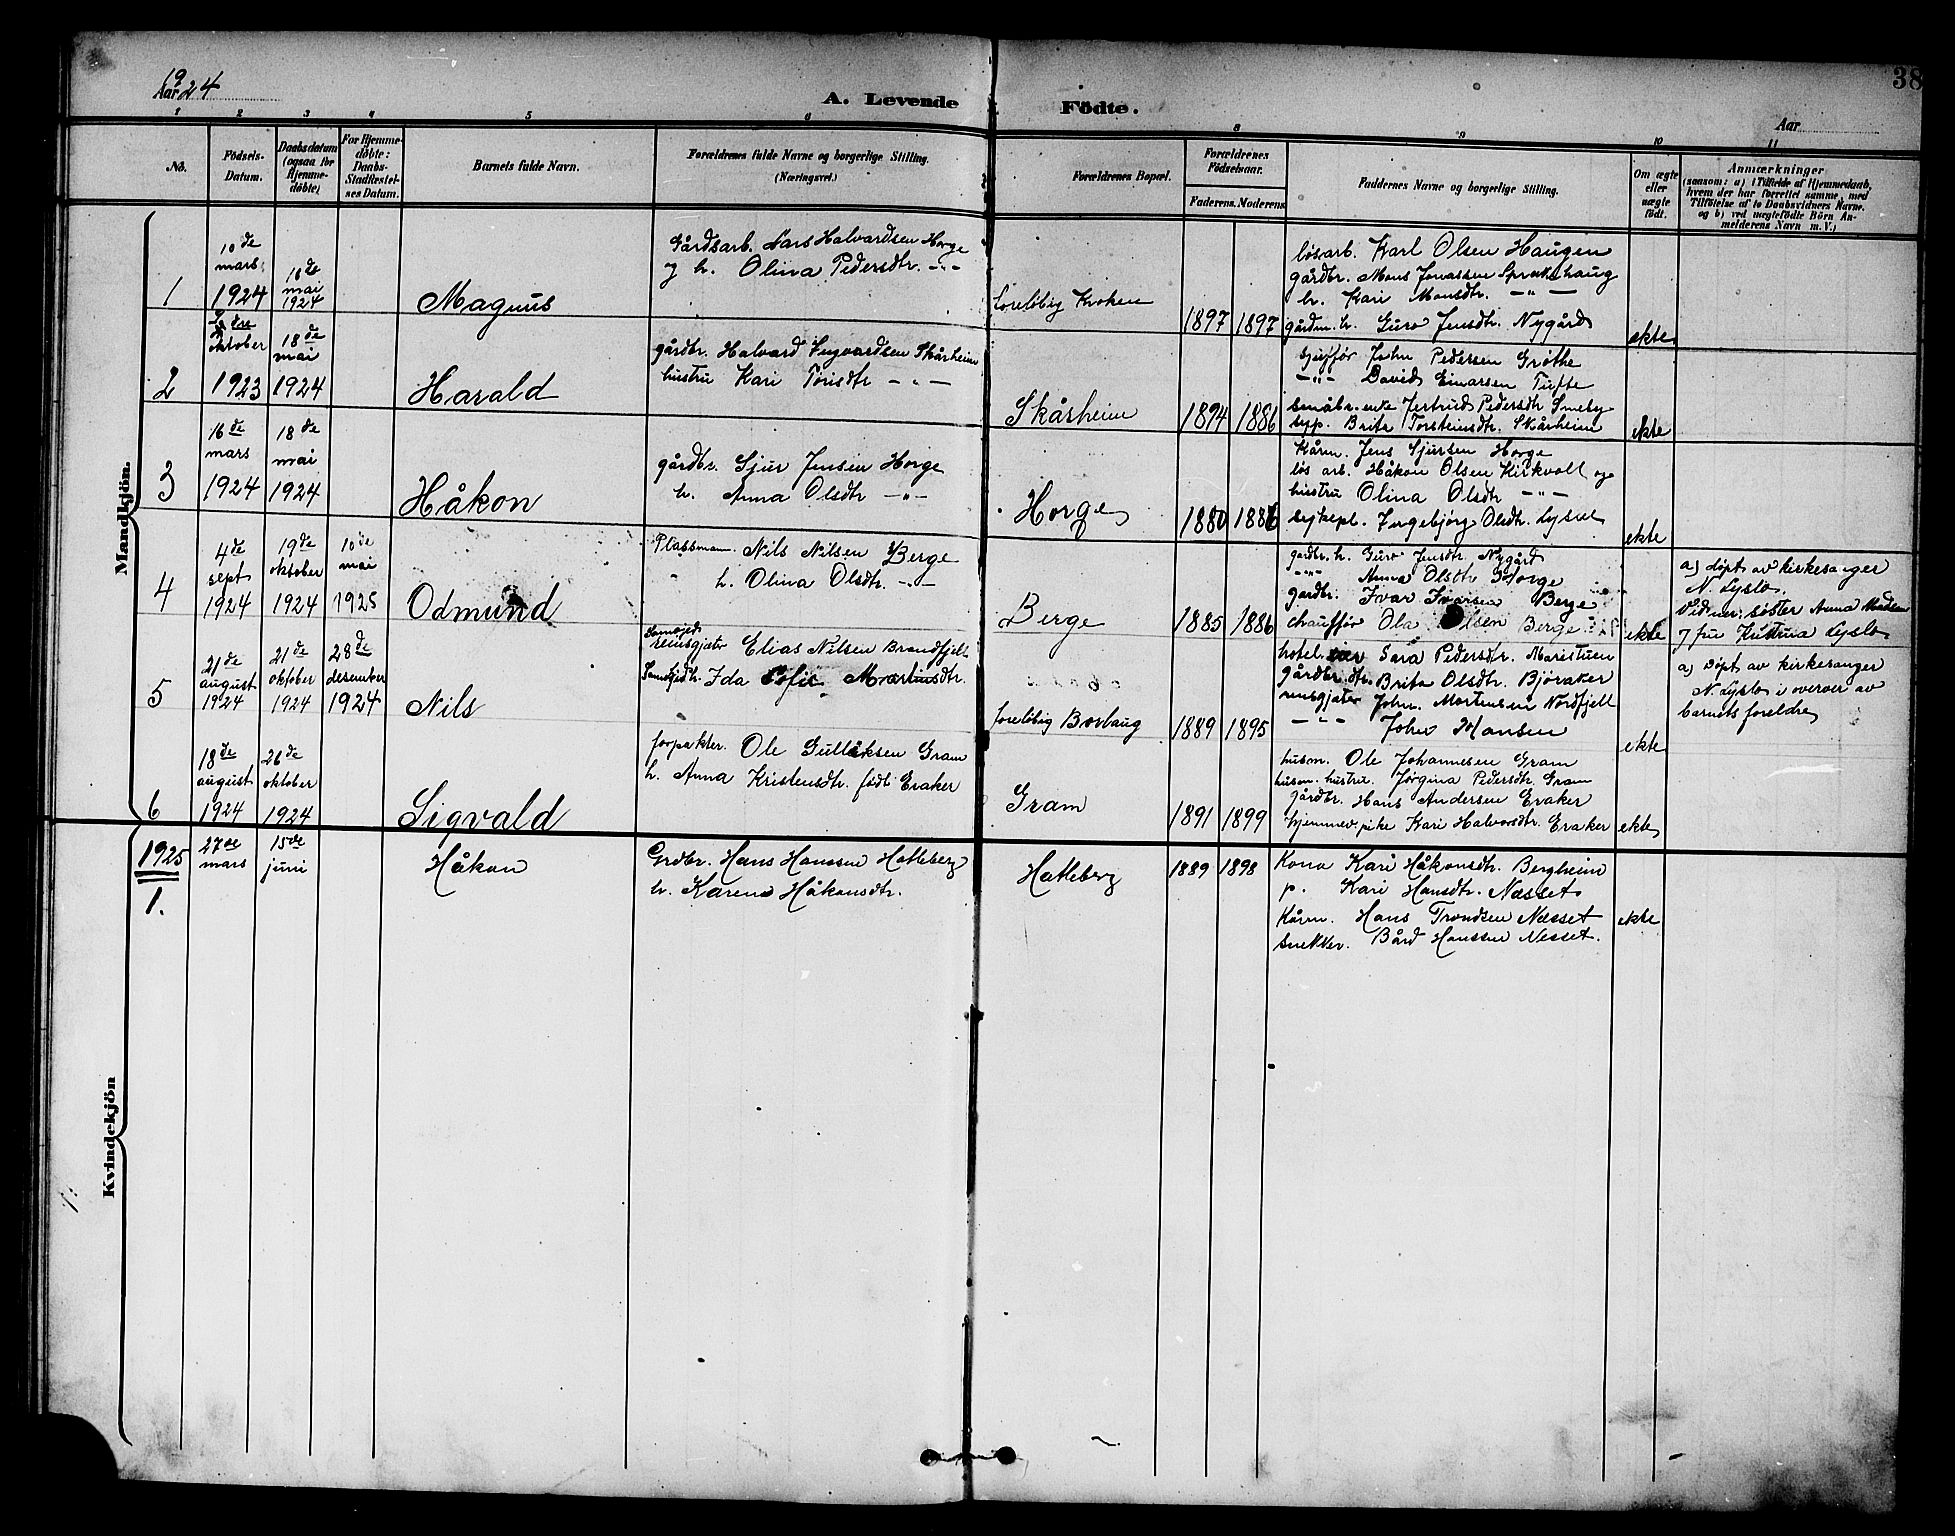 Aar 1924
A. Levende Födte.
Aar
38
1 2 3 4 5 6 8 9 10 11
No.
Födsels-Datum.
Daabsdatum (ogsaa for Hjemmedöbte)
For Hjemmedöbte: Daabs-Stadfæstelses Datum.
Barnets fulde Navn.
Forældrenes fulde Navne og borgerlige Stilling. (Næringsvei.)
Forældrenes Bopæl.
Forældrenes Födselsaar.
Faderens. Moderens
Faddernes Navne og borgerlige Stilling.
Om ægte eller uægte födt.
Anmærkninger
(saasom: a) i Tilfælde af Hjemmedaab,
hvem der har forrettet samme, med
Tilföielse af to Daabsvidners Navne.
og b) ved uægtefödte Börn An-
melderens Navn m. V.)
Mandkjön.
1
10de mars 1924
18de mai 1924
Magnus
Gårdsarb. Lars Halvardsen Horge
og h. Olina Pedersdtr. -"-
Foreløbig Kroken
1897 1897
løsarb. Karl Olsen Haugen
gårdbr. Mons Jonassen Sprakehaug
h. Kari Monsdtr. -"-
gårdm. h. Guro Jensdtr. Nygård
ekte
2
oktober 1923
18de mai 1924
Harald
gårdbr. Halvard Ingvardsen Skårheim
hustru Kari Torisdtr -"-
Skårheim
1894 1886
John Pedersen Grøthe
-"- David Einarsen Tufte
småbr. enke Jertrud Pedersdtr Smeby
syp. Brita Torsteinsdtr. Skårheim
ekte
3
16de mars 1924
18de mai 1924
Håkon
gårdbr. Sjur Jensen Horge
h. Anna Olsdtr -"-
Horge
1880 1886
Kårm. Jens Sjursen Horge
løs arb. Håkon Olsen Kirkvoll og
hustru Olina Olsdtr -"-
sykepl. Ingebjørg Olsdtr. Lysne
ekte
4
4de sept 1924
19de oktober 1924
10de mai 1925
Odmund
Plassmann. Nils Nilsen Berge
h. Olina Olsdtr. -"-
Berge
1885 1886
gardbr. h. Guro Jensdtr. Nygård
-"- Anna Olsdtr Horge
gardbr. Ivar Ivarsen Berge
chauffør Ola Olsen Berge
ekte
a) døpt av kirkesanger
N. Lyslo.
Vidner: søster Anna Madsen
og fru Kristina Lyslo
5
21de august 1924
21de oktober 1924
28de desember 1924
Nils
reinsgjæter Elias Nilsen Brandfjell
Ida Sofie Martinsdtr.
foreløbig Borlaug
1889 1895
hotel. eier Sara Pedersdtr. Maristuen
Gårdbr. dtr. Brita Olsdtr. Bjøraker
rensgjæter John Mortensen Nordfjell
-"- John Hansen
ekte
a) Døpt av kirkesanger
N. Lyslo i overvær av
barnets foreldre
6
18de august 1924
26de oktober 1924
Sigvald
forpakter. Ole Gulliksen Gram
h. Anna Kristensdtr. født Eraker
Gram
1891 1899
husm. Ole Johannesen Gram
husm. hustru. Jørgina Pedersdtr. Gram
Gårdbr. Hans Andersen Eraker
hjemmev. pike Kari Halvorsdtr. Eraker
ekte
1925
1.
27de mars
15de juni
Håkon
Grdbr. Hans Hanssen Hatleberg
h. Karena Håkonsdtr.
Hatleberg
1889 1898
Kona Kari Håkonsdtr. Bergheim
p. Kari Hansdtr. Næsset
Kårm. Hans Trondsen Næsset
Snekker. Bård Hanssen Nesset.
ekte
Kvindekjön